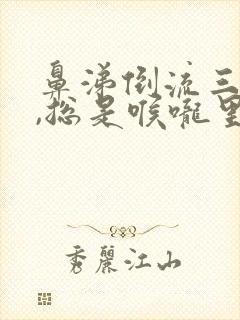 鼻涕倒流三
,总是喉咙里
秀麗江山